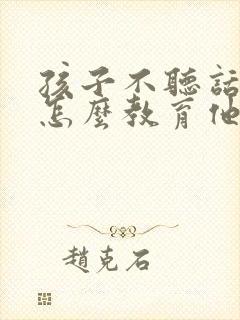 孩子不聽話
怎麼教育他
趙克石